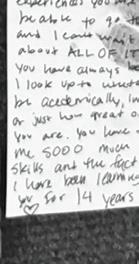 experiences you
be able to go
and I can't wait
about ALL OF IT
You have always be
I look up to
be academically, in
or just how great o
you are. You have
me SOOO much
skills and the fact
I have been
you for 14 years